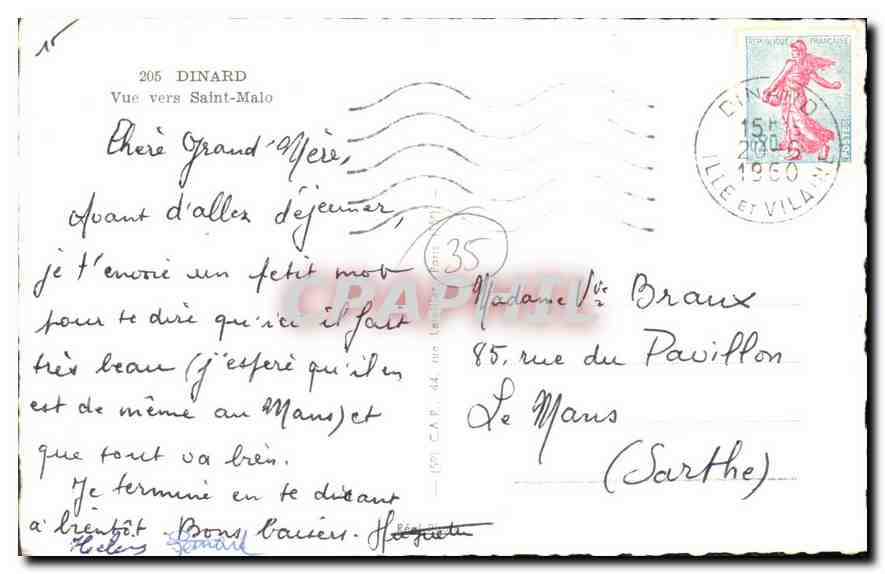 15
205 DINARD
Vue vers Saint-Malo
Chère Grand'Mère,
Avant d'aller déjeuner,
je t'envoie un petit mot
pour te dire qu'ici il fait
très beau (j'espère qu'il en
est de même au Mans) et
que tout va bien.
Je termine en te disant
à bientôt Bons baisers. Huguette
REPUBLIQUE FRANÇAISE
POSTES
DINARD
15H
20-5
1960
ILLE ET VILAINE
35
CRAPHIL
Madame Vve Braux
85, rue du Pavillon
Le Mans
(Sarthe)
C.A.P. 44, rue Paris